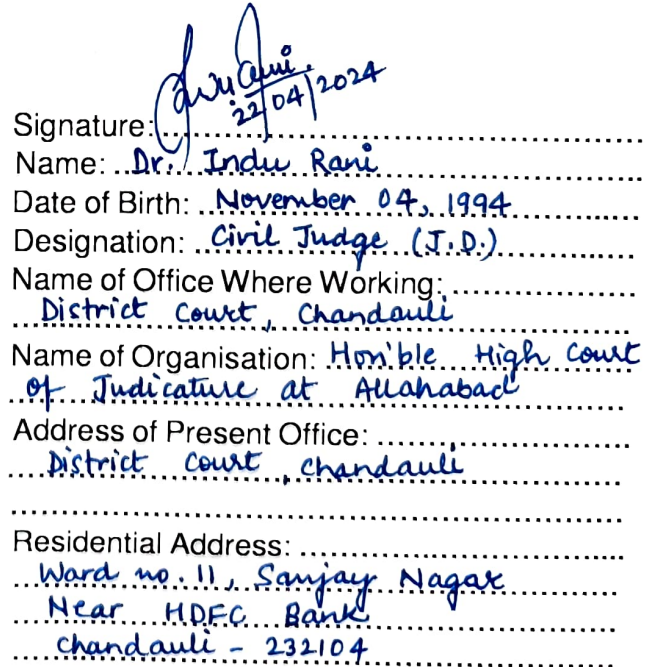 22/04/2024
Signature:
Name: Dr. Indu Rani
Date of Birth: November 04, 1994
Designation: Civil Judge (J.D.)
Name of Office Where Working:
District Court, Chandauli
Name of Organisation: Hon'ble High Court
of Judicature at Allahabad
Address of Present Office:
District Court, Chandauli
Residential Address:
Ward no. 11, Sanjay Nagar
Near HDFC Bank
Chandauli - 232104